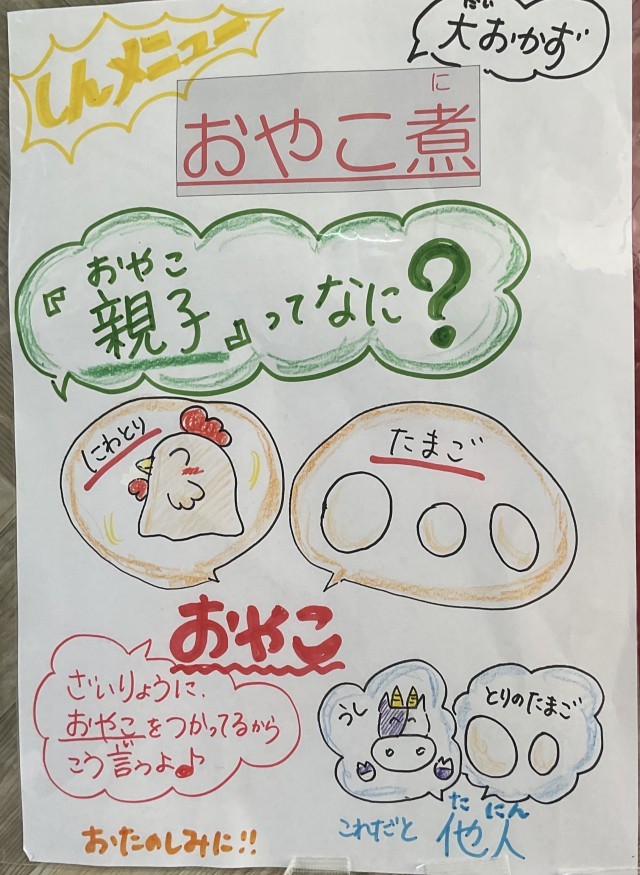 しんメニュー
だい
大おかず
に
おやこ煮
おやこ
『親子』ってなに?
にわとり
たまご
おやこ
ざいりょうに、
おやこをつかってるから
こう言うよ♪
うし
とりのたまご
たにん
これだと他人
おたのしみに!!